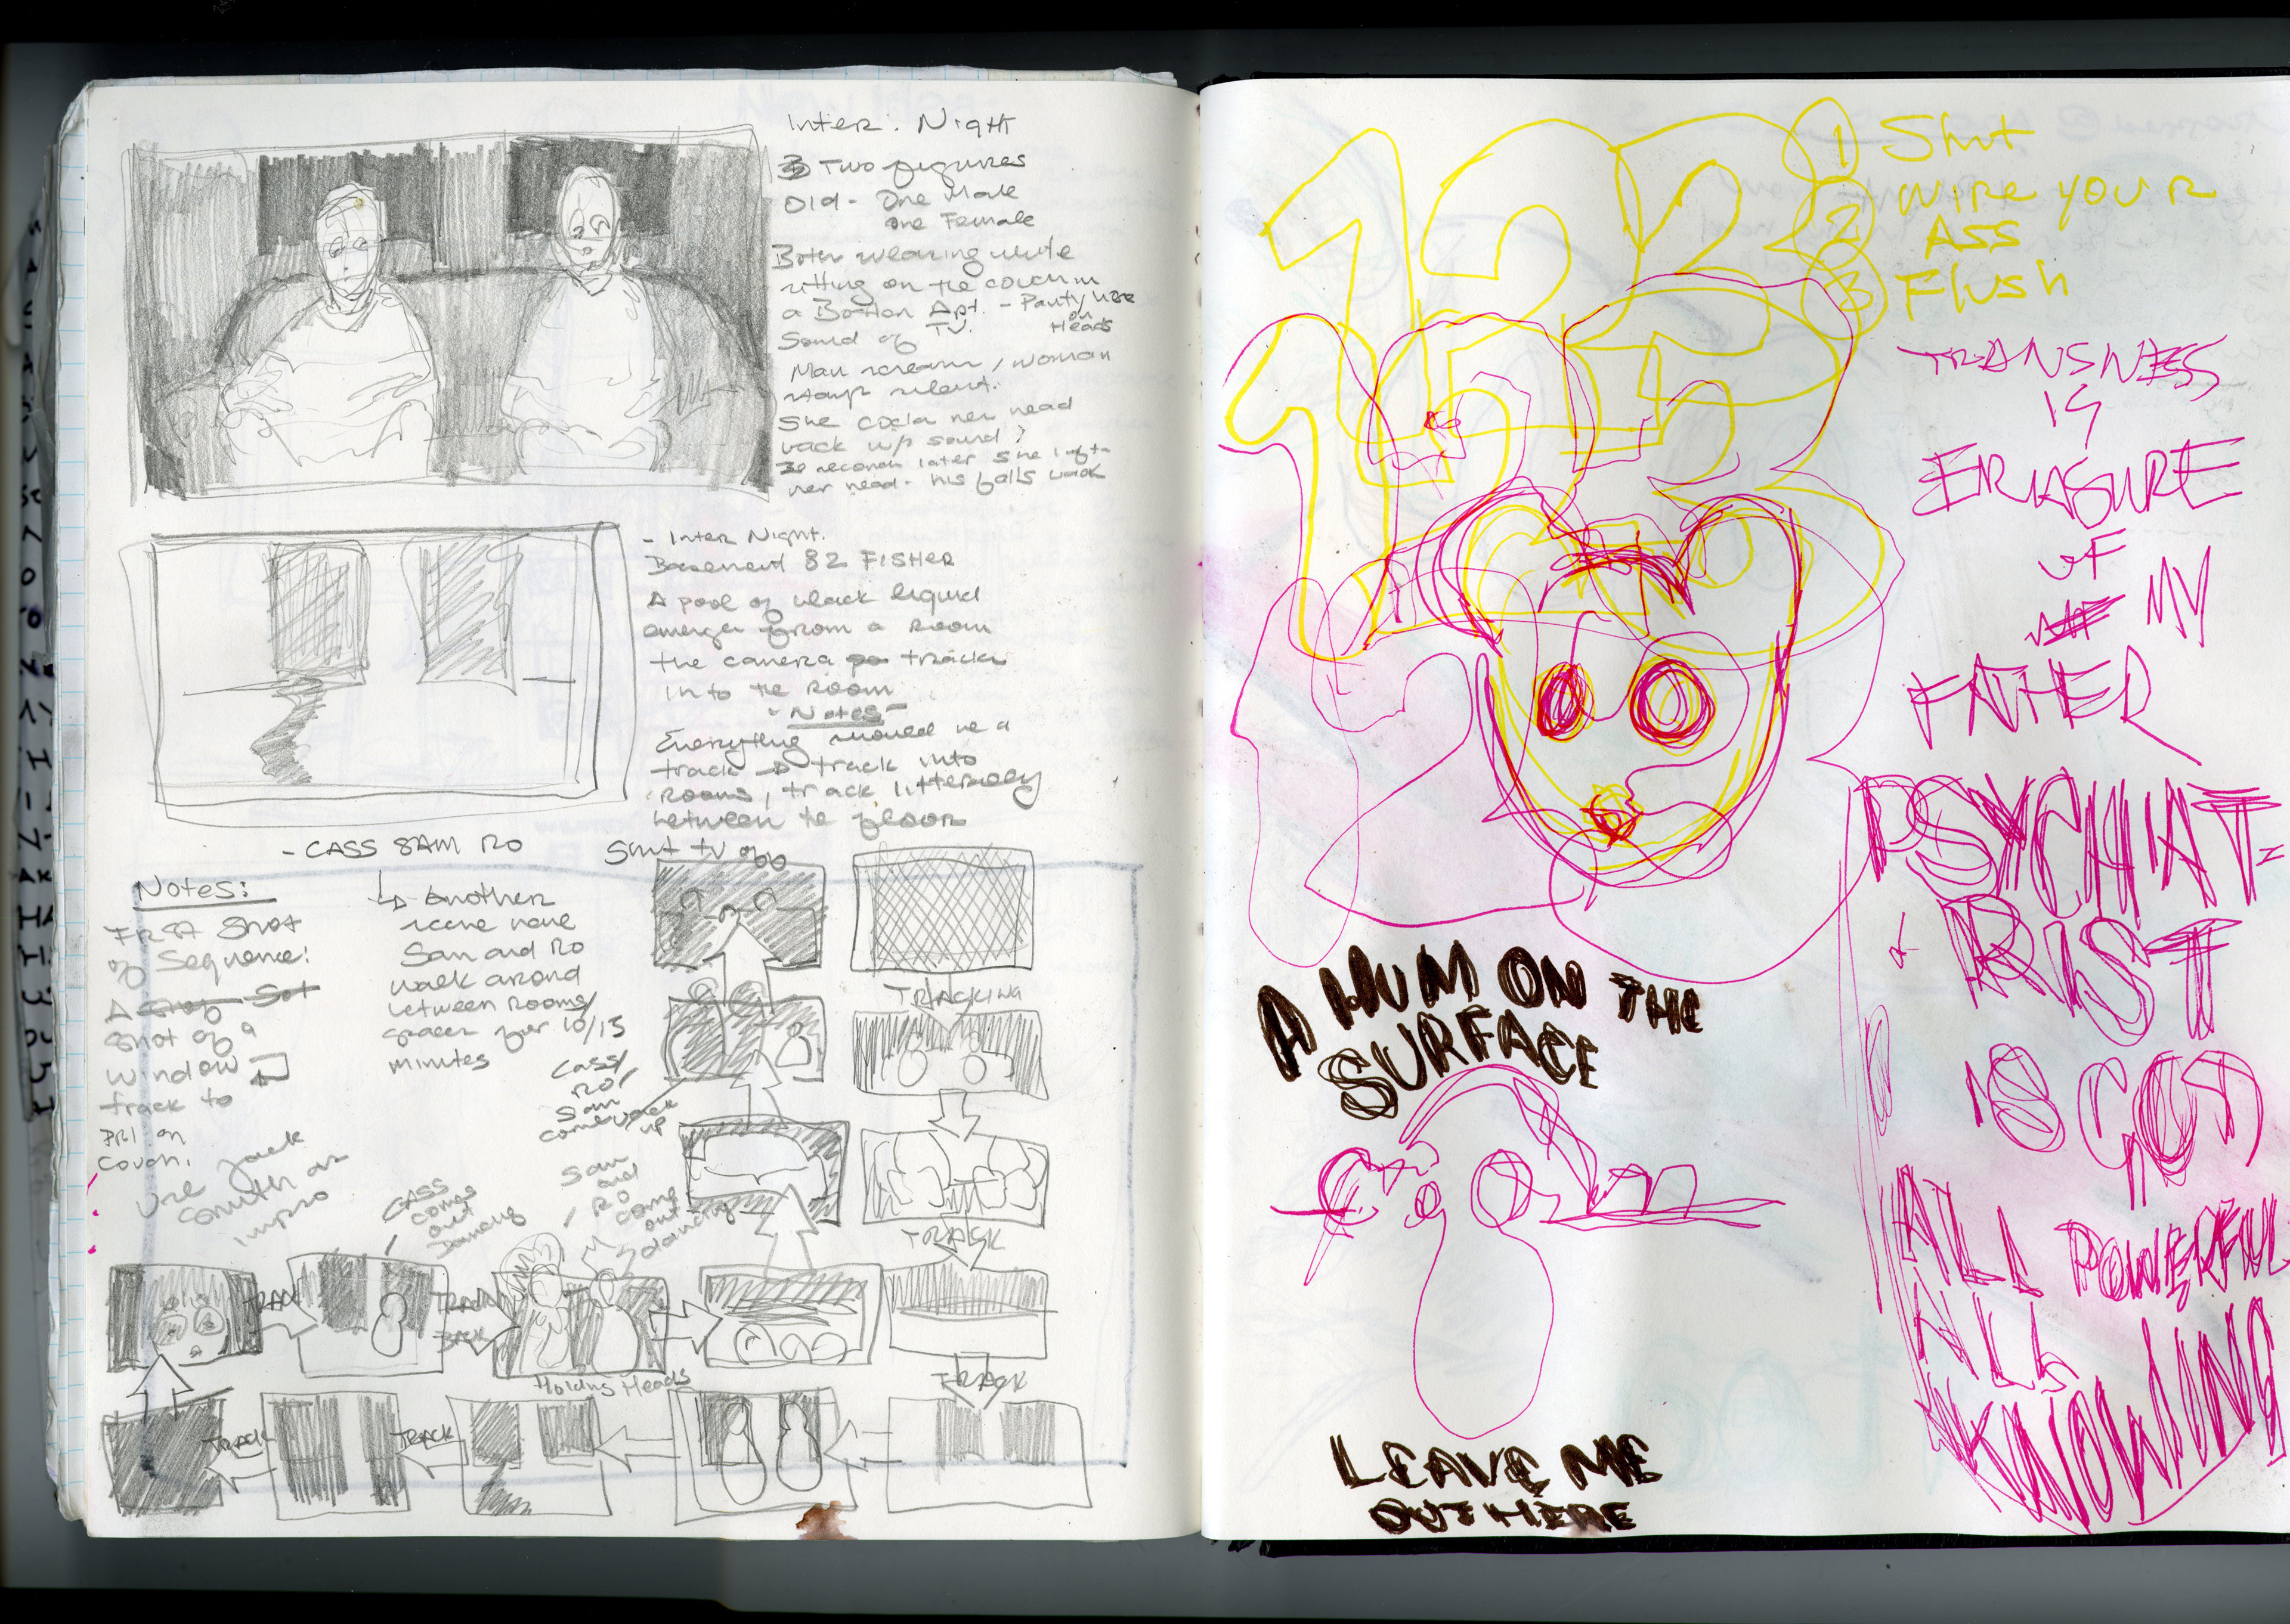 Inter. Night
Two figures
Old - One Male
One Female
Both wearing white
sitting on the couch in
a Boston Apt. - Panty hose
on
Heads
Sound of TV.
Man screams / woman
stays silent.
She cocks her head
back w/ sound ?
30 seconds later she lifts
her head - his falls back
- Inter Night.
Basement 82 FISHER
A pool of black liquid
emerges from a room
the camera tracks
into the room
- Notes -
Everything should be a
track → track into
rooms, track litterally
between the floor
- CASS SAM RO
↳ Another
scene have
Sam and Ro
walk around
between rooms/
spaces for 10/15
minutes
Shut tv off
Notes:
First Shot
of Sequence:
A
Shot of a
window
track to
on
couch.
Use Jack
Smith as
inspro
Cass/
RO/
Sam
come back
up
CASS
comes
out
Dancing
Sam
and
Ro
come
out
dancing
TRACKING
TRACK
TRACK
TRACK
TRACK
BACK
Holding Heads
TRACK
TRACK
1 2
1 Shit
2 WIPE YOUR
ASS
3 Flush
TRANSNESS
IS
ERASURE
OF
MY
FATHER
PSYCHIAT-
RIST
IS GOD
ALL POWERFUL
ALL
KNOWING
A HUM ON THE
SURFACE
LEAVE ME
OUT HERE